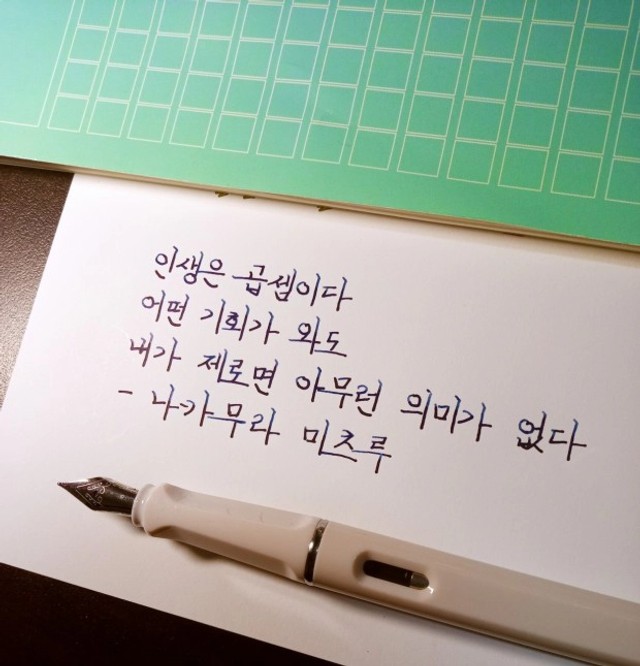 인생은 곱셈이다
어떤 기회가 와도
내가 제로면 아무런 의미가 없다
- 나카무라 미츠루